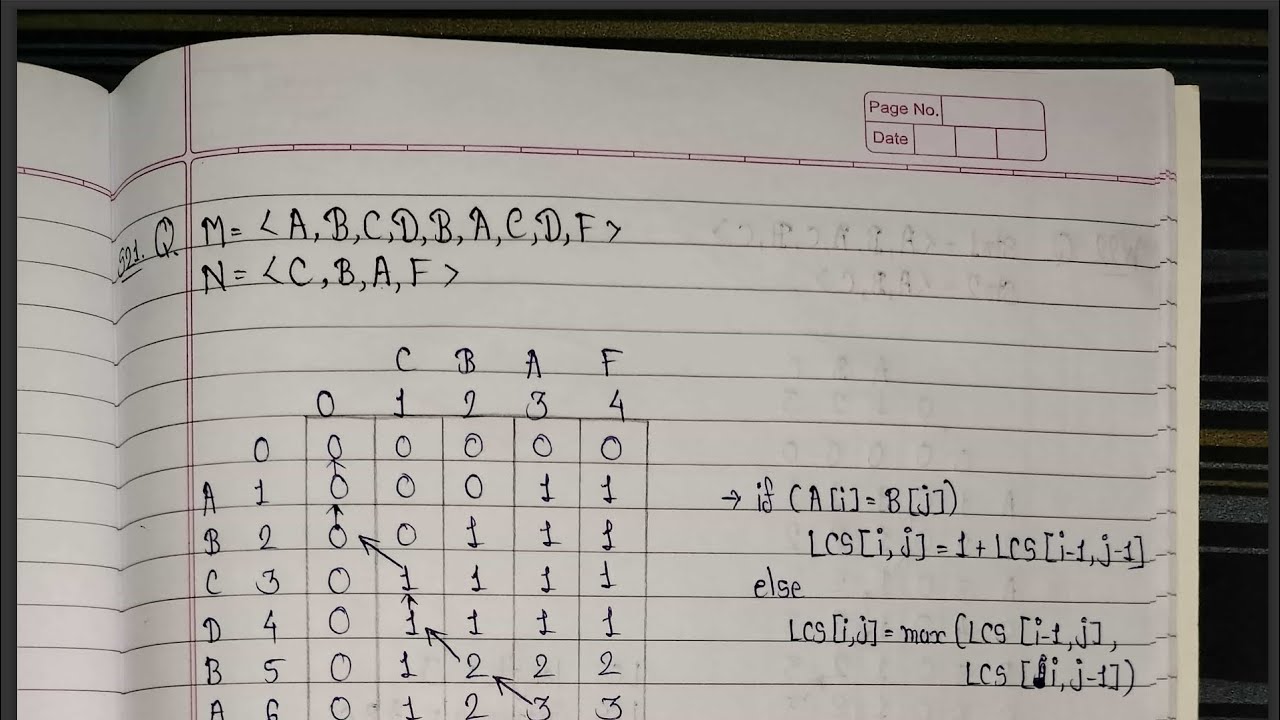 Page No.
Date
521. Q M = < A, B, C, D, B, A, C, D, F >
N = < C, B, A, F >
C B A F
0 1 2 3 4
0 0 0 0 0 0
A 1 0 0 0 1 1
→ if (A[i] = B[j])
B 2 0 0 1 1 1
LCS[i, j] = 1 + LCS[i-1, j-1]
C 3 0 1 1 1 1
else
D 4 0 1 1 1 1
LCS[i,j] = max (LCS [i-1,j],
B 5 0 1 2 2 2
LCS [i, j-1])
A 6 0 1 2 3 3